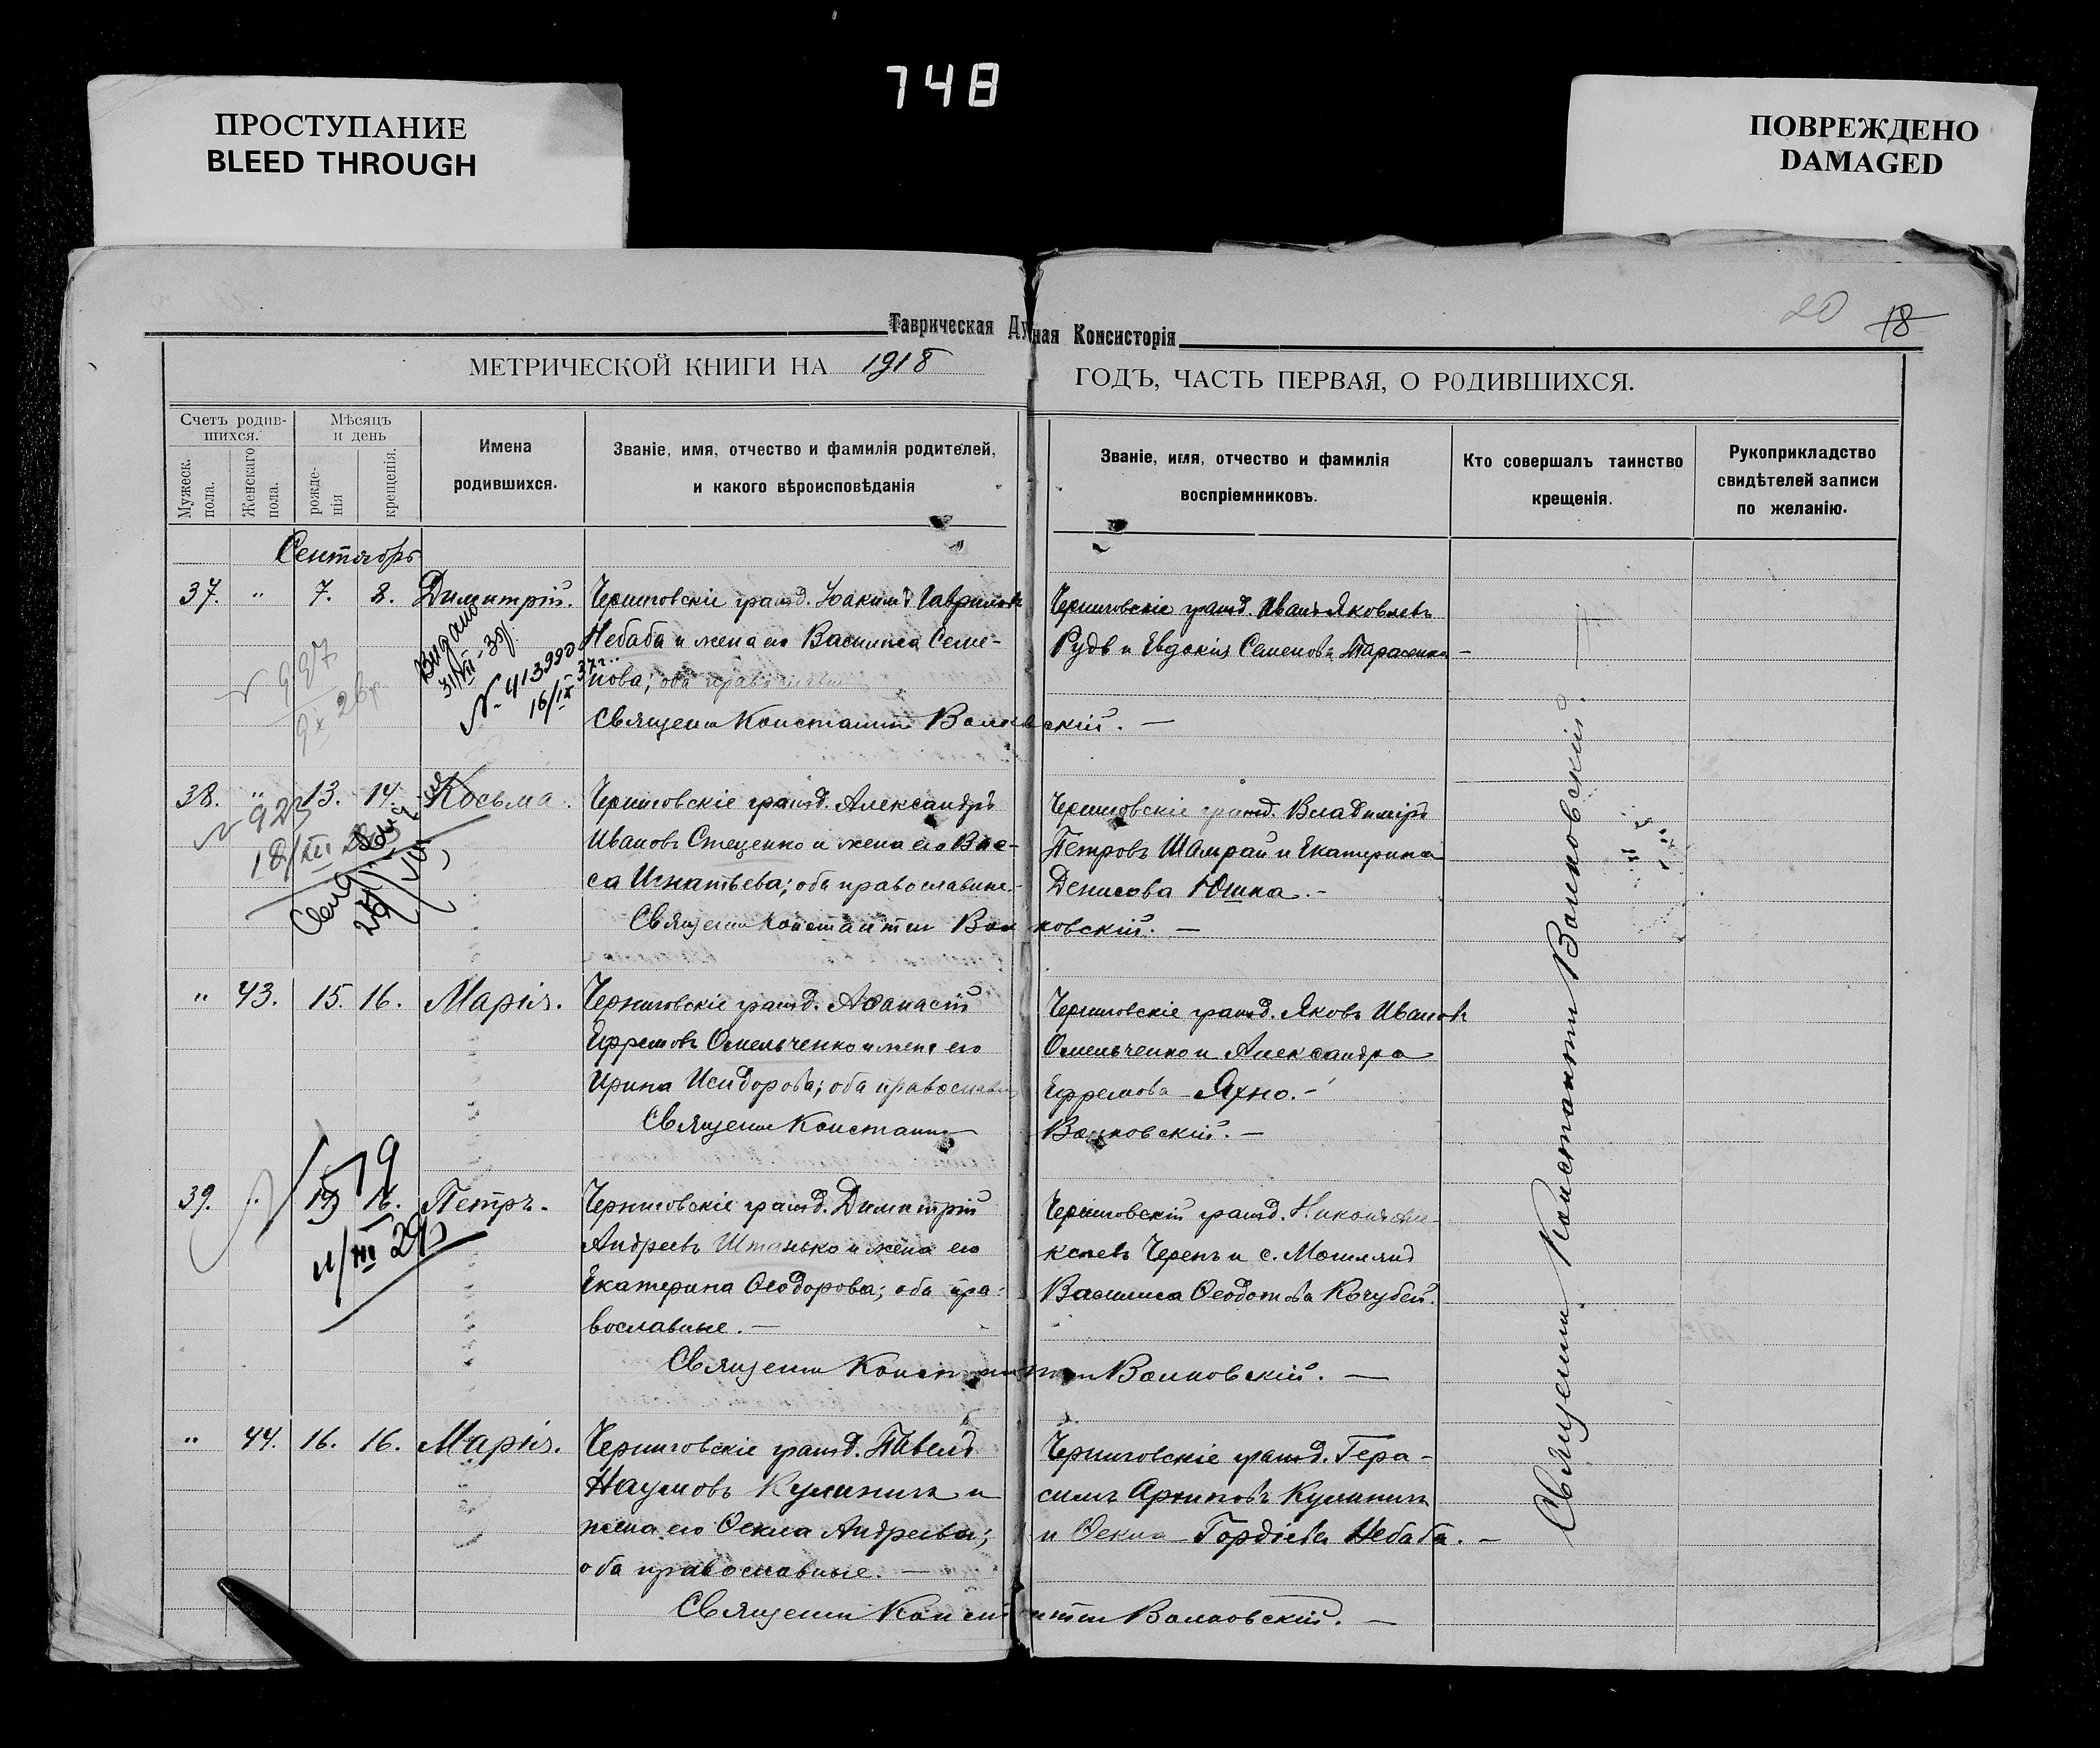 748
ПРОСТУПАНИЕ
BLEED THROUGH
ПОВРЕЖДЕНО
DAMAGED
20 18
Таврическая Духовная Консисторія
МЕТРИЧЕСКОЙ КНИГИ НА 1918 ГОДЪ, ЧАСТЬ ПЕРВАЯ, О РОДИВШИХСЯ.
Счетъ родив-
шихся.
Мужеск. пола.
Женскаго пола.
Мѣсяцъ
и день
рожде-
нія
крещенія.
Имена
родившихся.
Званіе, имя, отчество и фамилія родителей,
и какого вѣроисповѣданія
Званіе, имя, отчество и фамилія
воспріемниковъ.
Кто совершалъ таинство
крещенія.
Рукоприкладство
свидѣтелей записи
по желанію.
Сентябрь
37. " 7. 8. Димитрій. Черниговскіе гражд. Іоакимъ Гавриловъ
Небаба и жена его Василиса Семе-
нова; оба православные
Священ Константинъ Волковскій. —
Черниговскіе гражд. Иванъ Яковлевъ
Рудь и Евдокія Семенова Тарасенко —
Видано
31/VII-39
№ 413990
16/IX 37 г.
38. " 13. 14. Косьма. Черниговскіе гражд. Александръ
Ивановъ Стеценко и жена его Вас-
са Игнатьева; оба православные.
Священ Константинъ Волковскій. —
Черниговскіе гражд. Владиміръ
Петровъ Шамрай и Екатерина
Денисова Юшка. —
№ 923
18/XII
" 43. 15. 16. Марія. Черниговскіе гражд. Аѳанасій
Ефремовъ Омельченко и жена его
Ирина Исидорова; оба православн
Священ Константинъ Волковскій. —
Черниговскіе гражд. Яковъ Ивановъ
Омельченко и Александра
Ефремова Яхно. —
1579
11/III 29р
39. " 16. Петръ. Черниговскіе гражд. Димитрій
Андреевъ Штанько и жена его
Екатерина Ѳеодорова; оба пра-
вославные. —
Священ Константинъ Волковскій. —
Черниговскій гражд. Николай Але-
ксеевъ Черепъ и с.
Василиса Ѳеодотова Кочубей.
" 44. 16. 16. Марія. Черниговскіе гражд. Павелъ
Наумовъ Кулиничъ и
жена его Ѳекла Андреева;
оба православные. —
Священ Константинъ Волковскій. —
Черниговскіе гражд. Гера-
симъ Архиповъ Кулиничъ
и Ѳекла Гордіева Небаба. —
Священ Константинъ Волковскій. —